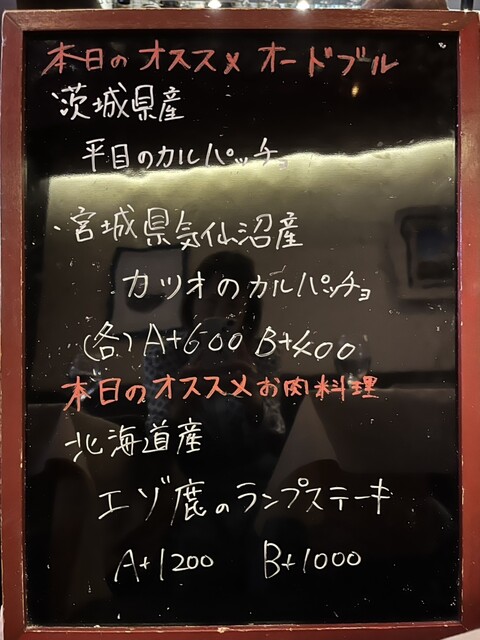 本日のオススメ オードブル
・茨城県産
平目のカルパッチョ
・宮城県気仙沼産
カツオのカルパッチョ
(各) A+600 B+400
本日のオススメお肉料理
北海道産
エゾ鹿のランプステーキ
A+1200 B+1000